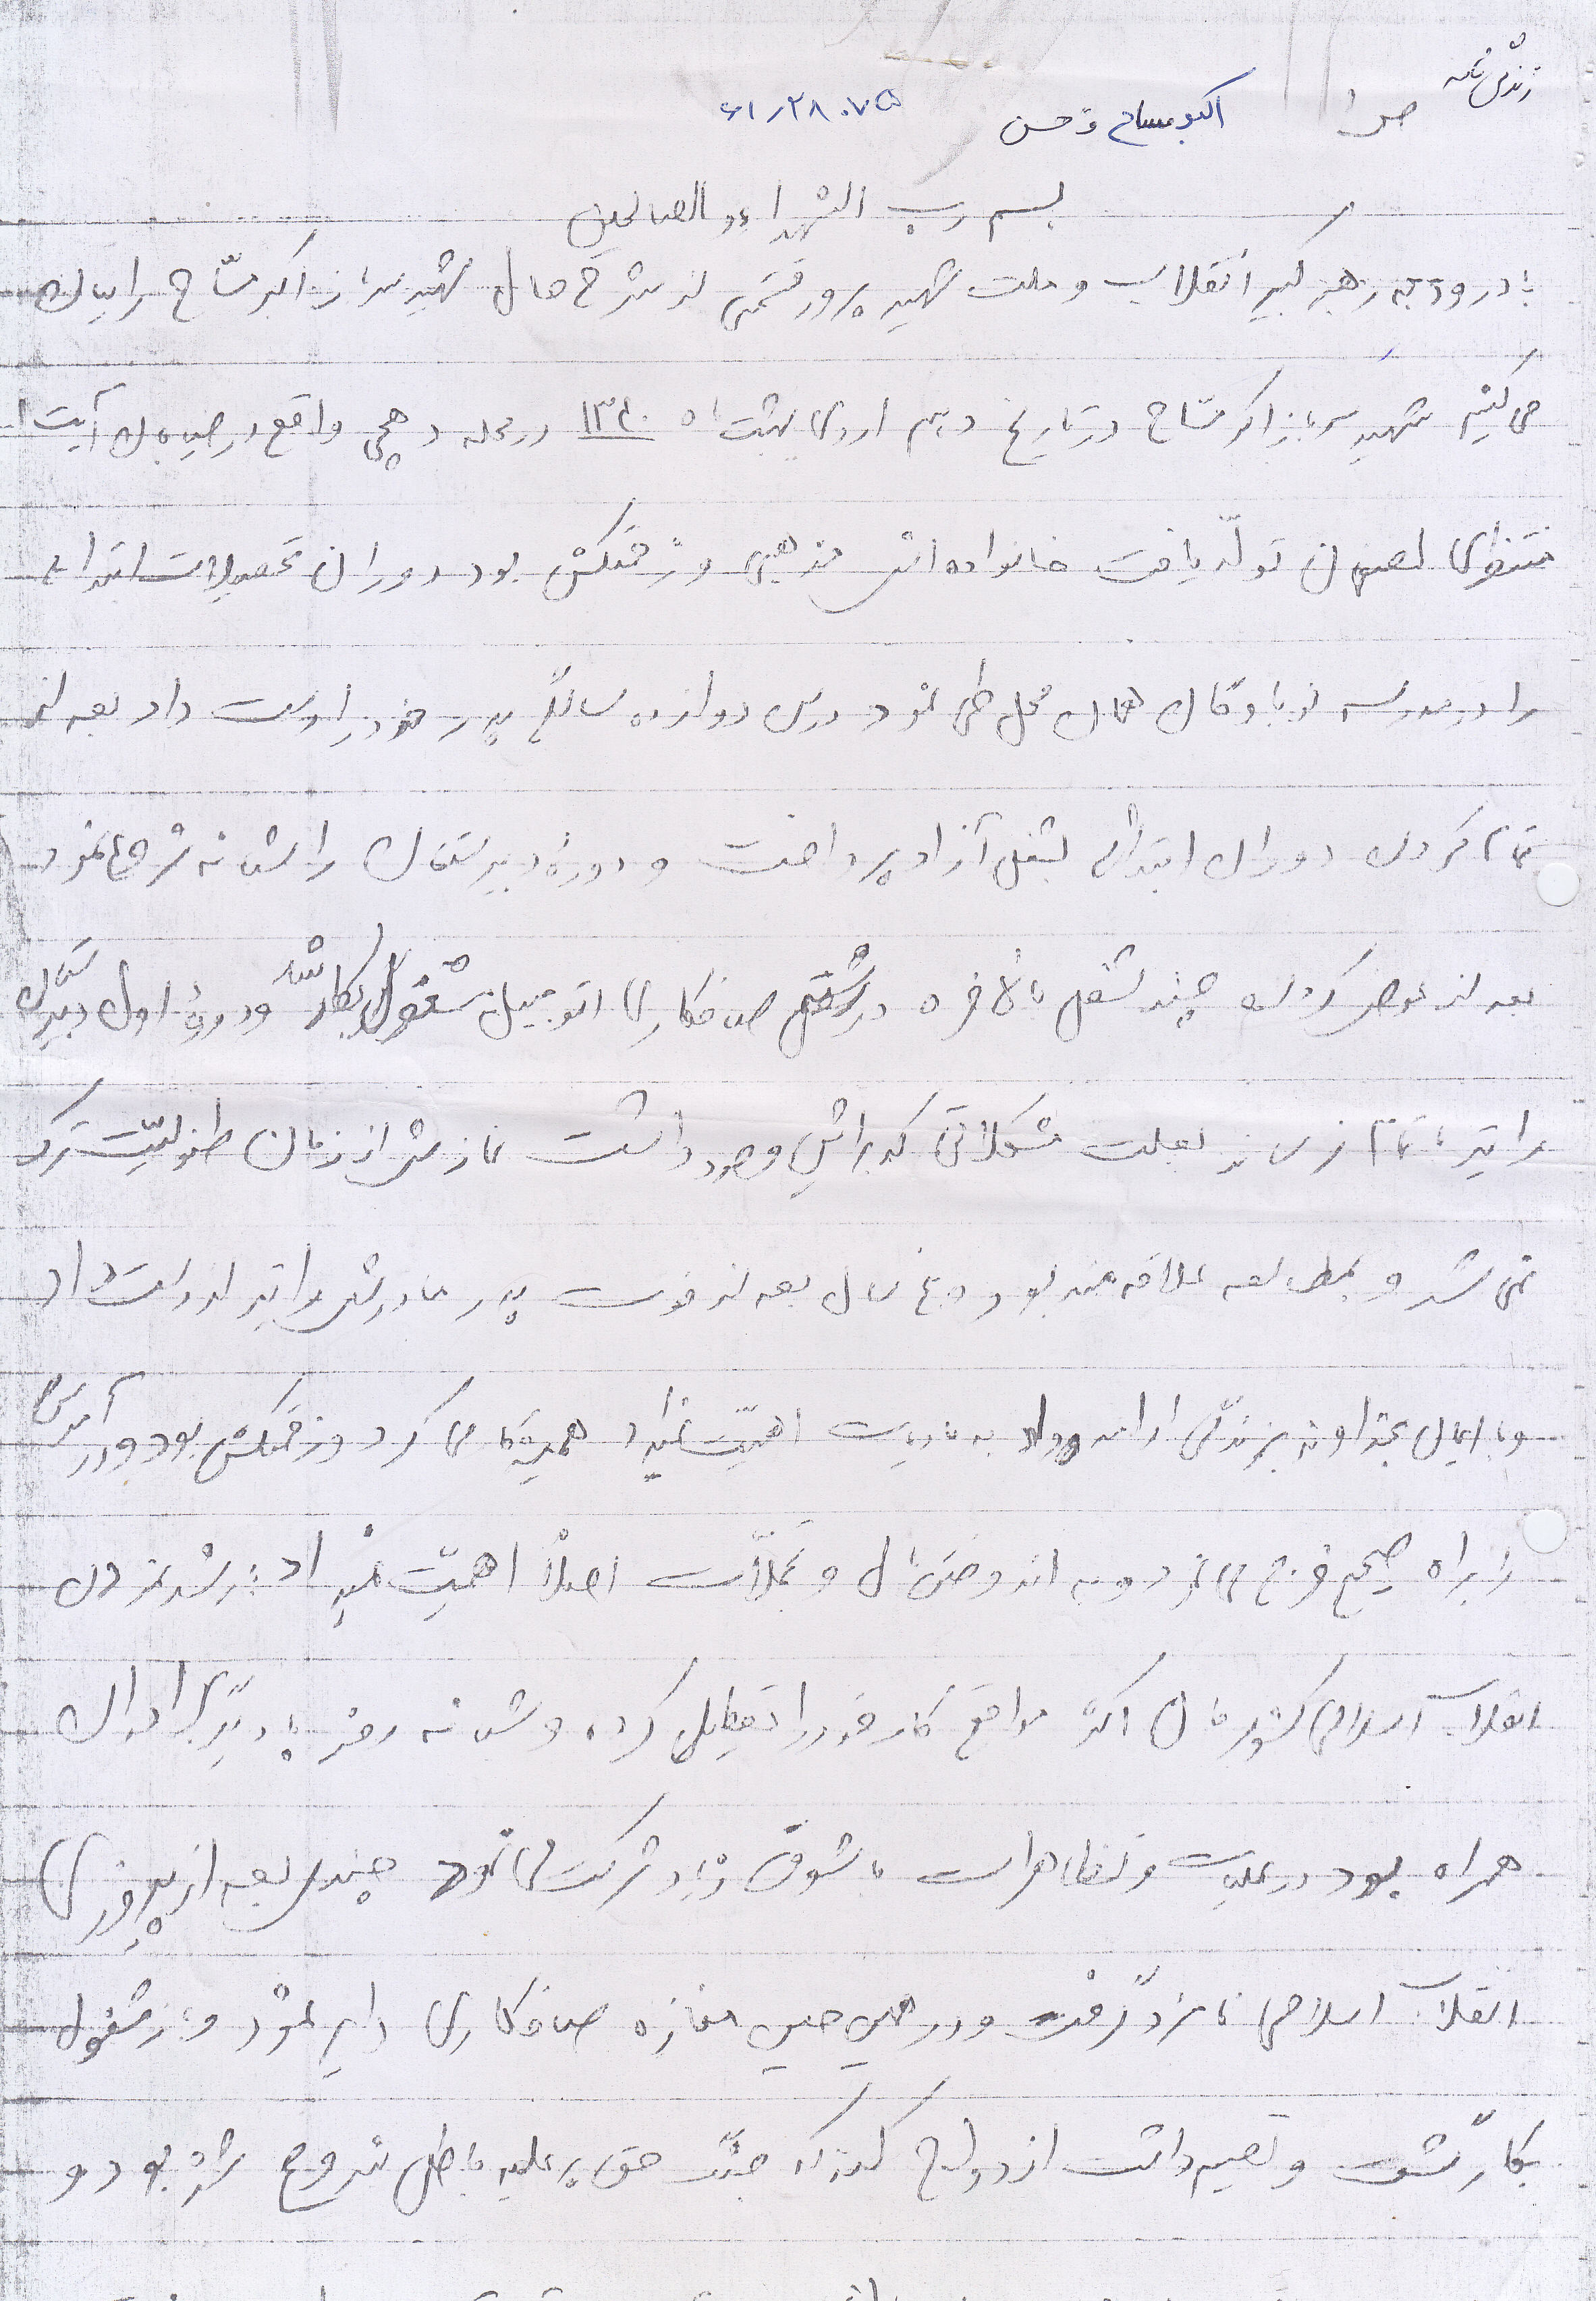 زندگی نامه
اکبر مساح ف حسن ۶۱/۲۸۰۷۵
بسم رب الشهداء و الصالحین
با درود به رهبر کبیر انقلاب و ملت شهید پرور قسمتی از شرح حال شهید سرباز اکبر مسّاح را بیان
می کنیم شهید سرباز اکبر مسّاح در تاریخ دهم اردی بهشت ماه ۱۳۴۰ در محله دهچی واقع در خیابان آیت ا
منتظری اصفهان تولّد یافت خانواده اش مذهبی و زحمتکش بود دوران تحصیلات ابتدایی
را در مدرسه نوباوگان همان محل طی نمود در سن دوازده سالگی پدر خود را از دست داد بعد از
تمام کردن دوران ابتدائی بشغل آزاد پرداخت و دوره دبیرستان را شبانه شروع نمود
بعد از عوض کردن چند شغل بالاخره در شغل صافکاری اتومبیل مشغول بکار شد و دورهٔ اول دبیرستان
را نیز با تمام نرساند بعلت مشکلاتی که برایش وجود داشت نمازش از زمان طفولیّت ترک
نمی شد و بمطالعه علاقه مند بود پنج سال بعد از فوت پدر مادرش را نیز از دست داد
و با ایمان بخداوند بزندگی ادامه داد به مادیات اهمیّت نمیداد همیشه کار می کرد و زحمتکش بود و درآمدش
را براه صحیح خرج می نمود و به اندوختن مال و تجملّات اصلاً اهمیّت نمیداد با رشد نمودن
انقلاب اسلامی کشورمان اکثر مواقع کار خود را تعطیل کرده و شبانه روز با دیگر برادران
همراه بود در جلسات و تظاهرات با شوق زیاد شرکت می نمود چندی بعد از پیروزی
انقلاب اسلامی نامزد گرفت و در همین حین مغازه صافکاری دایر نمود و باز مشغول
بکار گشت و تصمیم داشت ازدواج کند که جنگ حق بر علیه باطل شروع شده بود و